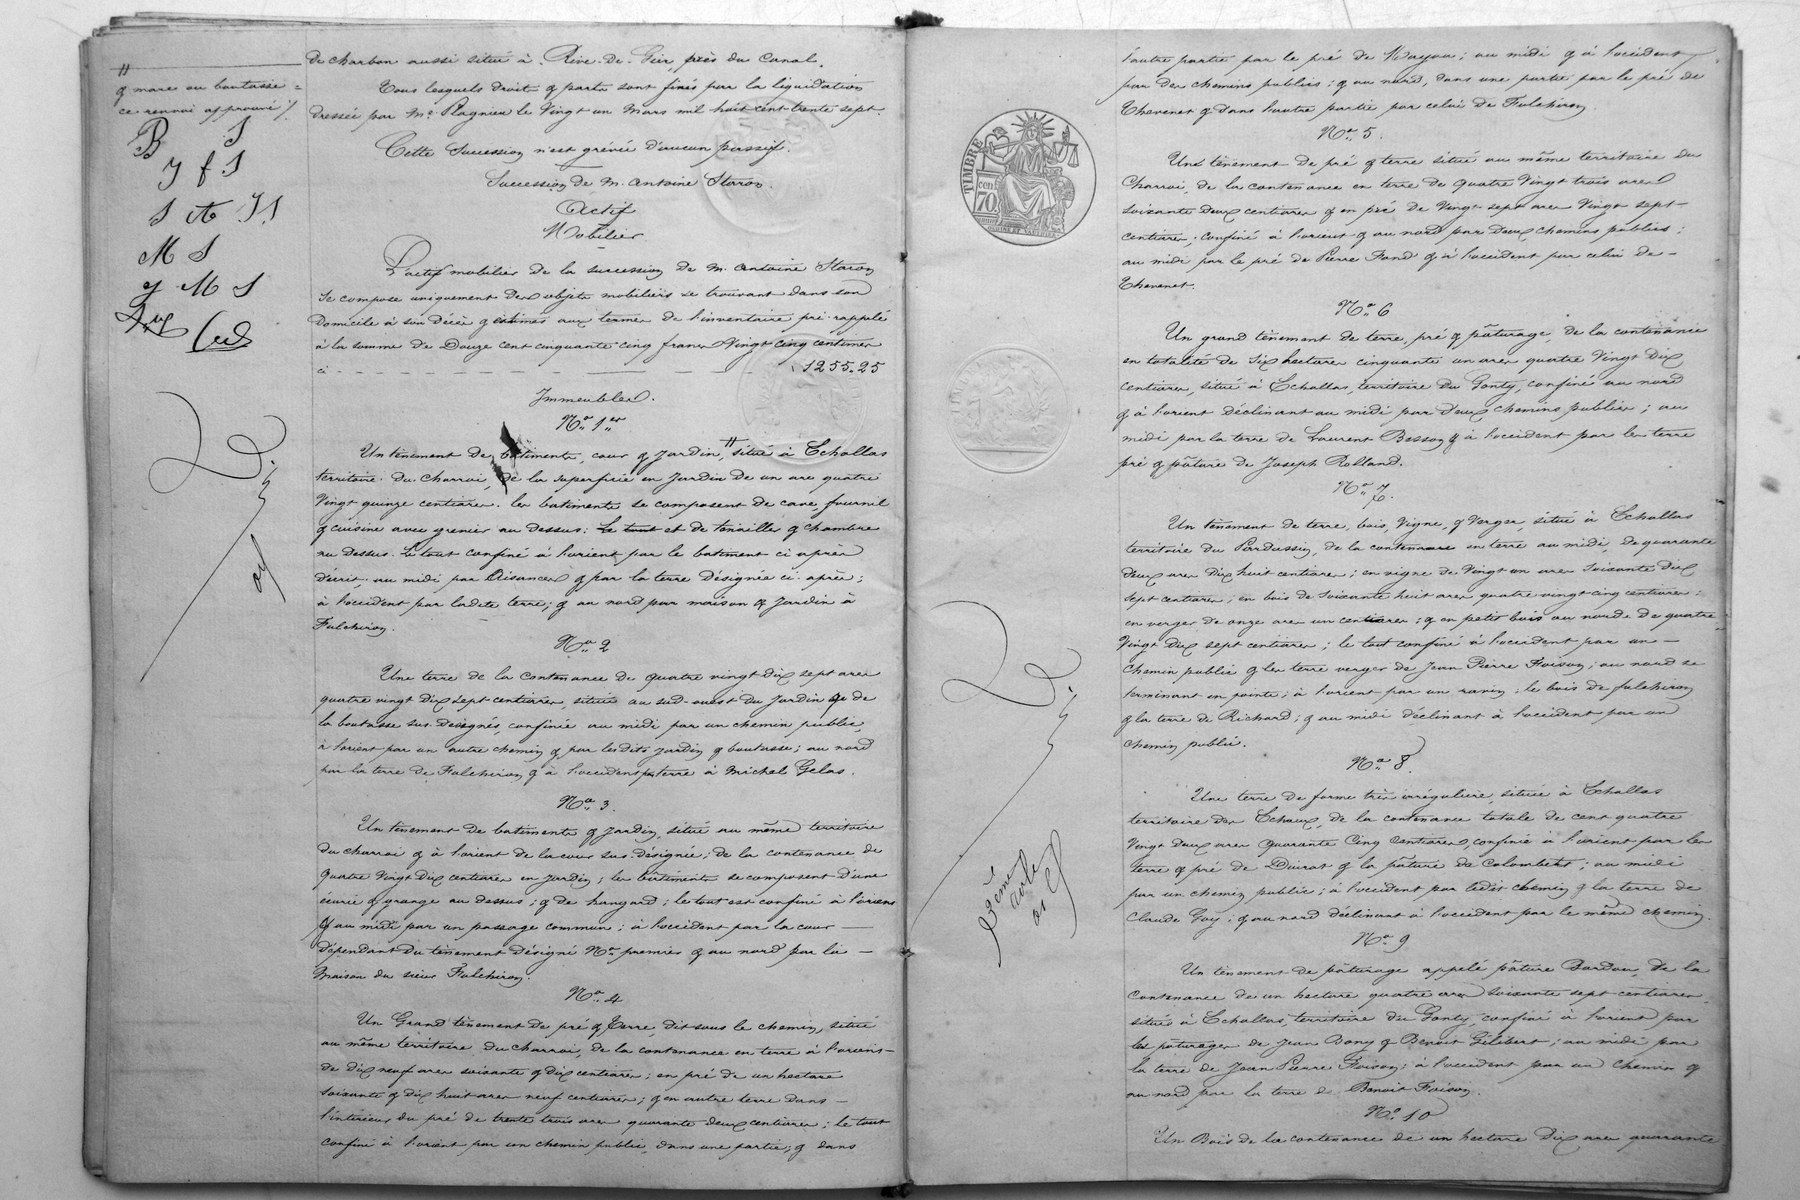 "
& mare ou boutasse =
ce renvoi approuvé /.
B S
J f S
S A J S
M S
y M S
de charbon aussi situé à Rive-de-Gier, près du Canal.
Tous lesquels droits & parts sont fixés par la liquidation
dressée par Me Plagnieu le Vingt un Mars mil huit cent trente sept.
Cette Succession n'est grévée d'aucun passif.
Succession de M. Antoine Staron.
Actif
Mobilier
L'actif mobilier de la succession de M. Antoine Staron
se compose uniquement des objets mobiliers se trouvant dans son
Domicile à son décès & estimés aux termes de l'inventaire pré-rappelé
à la somme de Douze cent cinquante cinq francs Vingt cinq centimes
ci - - - 1255.25
Immeubles.
No. 1er
Un tènement de bâtiments, cour & Jardin, " situé à Echallas
territoire du Charroi, de la superficie en Jardin de un are quatre
Vingt quinze centiares. les batiments se composent de cave, fournil
& cuisine avec grenier au dessus: Le tout et de tenailler & chambre
au dessus. Le tout confiné à l'orient par le batiment ci après
décrit; au midi par Aisances & par la terre désignée ci-après;
à l'occident par ladite terre; & au nord par maison & Jardin à
Fulchiron.
No. 2
Une terre de la contenance de quatre vingt dix sept ares
quatre vingt dix sept centiares, située au sud-ouest du Jardin & de
la boutasse sus-désignés, confinée au midi par un chemin public,
à l'orient par un autre chemin & par lesdits jardin & boutasse; au nord
par la terre de Fulchiron & à l'occident par terre à Michel Gelas.
No. 3.
Un tènement de batiments & Jardin, situé au même territoire
du charroi & à l'orient de la cour sus-désignée; de la contenance de
quatre Vingt dix centiares en Jardin; les bâtiments se composent d'une
écurie & grange au dessus; & de hangard; le tout est confiné à l'orient
& au midi par un passage commun; à l'occident par la cour
dépendant du tènement désigné No premier & au nord par la
maison du sieur Fulchiron.
No. 4
Un Grand tènement de pré & Terre, dit sous le chemin, situé
au même territoire du Charroi, de la contenance en terre à l'orient
de dix neuf ares soixante & dix centiares; en pré de un hectare
soixante & dix huit ares neuf centiares; & en autre terre dans
l'intérieur du pré de trente trois ares quarante deux centiares; le tout
confiné à l'orient par un chemin public, dans une partie; & dans
TIMBRE
70 cent
l'autre partie par le pré de Mayou; au midi & à l'occident
par des chemins publics; & au nord, dans une partie par le pré de
Thevenet & dans l'autre partie par celui de Fulchiron
No. 5.
Un tènement de pré & terre situé au même territoire du
Charroi, de la contenance en terre de quatre Vingt trois ares
soixante deux centiares & en pré de Vingt sept ares Vingt sept
centiares; confiné à l'orient & au nord par deux chemins publics;
au midi par le pré de Pierre Fond & à l'occident par celui de
Thevenet.
No. 6
Un grand tènement de terre, pré & pâturage, de la contenance
en totalité de Six hectares cinquante un ares quatre Vingt Dix
centiares, situé à Echallas, territoire du Gonty, confiné au nord
& à l'orient déclinant au midi par deux chemins publics; au
midi par la terre de Laurent Besson & à l'occident par les terre
pré & pâture de Joseph Rolland.
No. 7.
Un tènement de terre, bois, Vigne, & Verger, situé à Echallas
territoire du Pardussin, de la contenance en terre au midi, de quarante
deux ares dix huit centiares; en vigne de Vingt un ares soixante dix
sept centiares; en bois de soixante huit ares quatre vingt cinq centiares;
en verger de onze ares un centiares; & en petit bois au nord de quatre
Vingt dix sept centiares; le tout confiné à l'occident par un
chemin public & les terre verger de Jean Pierre Foison; au nord se
terminant en pointe; à l'orient par un ravin; le bois de Fulchiron
& la terre de Richard; & au midi déclinant à l'occident par un
chemin public.
No. 8.
Une terre de forme très irrégulière, située à Echallas
territoire des Echaux, de la contenance totale de cent quatre
Vingt deux ares quarante Cinq Centiares, confinée à l'orient par les
terre & pré de Duirat & la pâture de Colombet; au midi
par un chemin public; à l'occident par ledit chemin & la terre de
Claude Guy; & au nord déclinant à l'occident par le même chemin.
No. 9
Un tènement de pâturage appelé pâture Bardou, de la
contenance de un hectare quatre ares soixante sept centiares,
situé à Echallas, territoire du Gonty, confiné à l'orient par
les pâturages de Jean Bony & Benoit Gilibert; au midi par
la terre de Jean Pierre Foison; à l'occident par un chemin &
au nord par la terre de Benoit Foison.
No. 10
Un Bois de la contenance de un hectare dix ares quarante